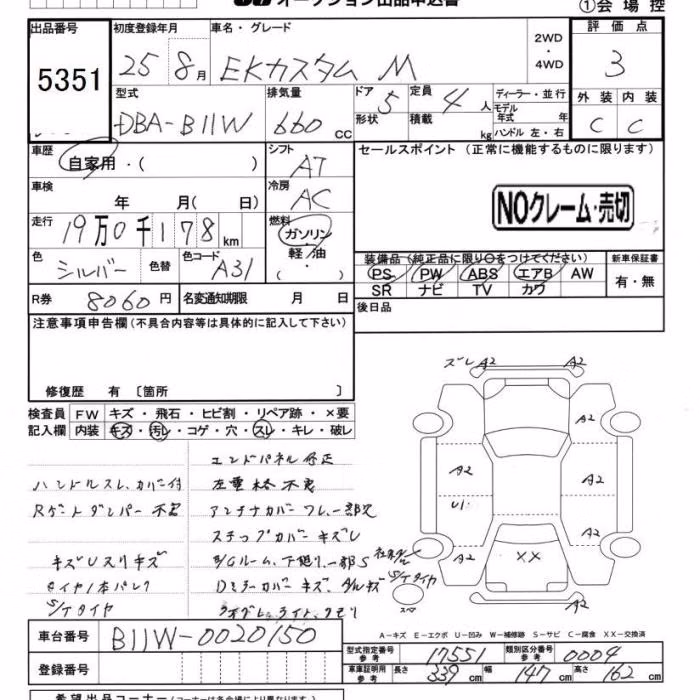 オークション出品申込書
①会場控
出品番号
5351
初度登録年月
25 8月
車名・グレード
EKカスタム M
2WD
・
4WD
評価点
3
型式
DBA-B11W
排気量
660 cc
ドア 5
形状
定員 4 人
積載 kg
ディーラー・並行
モデル年式 年
ハンドル 左・右
外装 内装
C C
車歴
自家用・( )
シフト
AT
セールスポイント (正常に機能するものに限ります)
NOクレーム・売切
車検
年 月( 日)
冷房
AC
走行
19万0千178km
燃料
ガソリン
軽油
・( )
色
シルバー
色替
色コード
A31
装備品(純正品に限り○をつけてください)
PS PW ABS エアB AW
SR ナビ TV カワ
新車保証書
有・無
R券 8060円
名変通知期限 月 日
後日品
注意事項申告欄(不具合内容等は具体的に記入して下さい)
修復歴 有 〔箇所 〕
検査員記入欄
FW キズ・飛石・ヒビ割・リペア跡・×要
内装 キズ・汚レ・コゲ・穴・スレ・キレ・破レ
エンドパネル修正
ハンドルスレ、カバー付
Rゲートダンパー不良
アンテナカバーワレ、一部欠
ステップカバーキズU
キズUスリキズ
タイヤ1本パンク
S/Tタイヤ
Dミラーカバーキズ
ズレ A2 A2
A2
A2 A2
U1
A2 A2
XX
S/Tタイヤ
A2 A2
A-キズ E-エクボ U-凹み W-補修跡 S-サビ C-腐食 XX-交換済
車台番号 B11W-0020150
登録番号
型式指定番号 参考 17551
類別区分番号 参考 0004
車庫証明用 参考 長さ 339cm 幅 147cm 高さ 162cm
希望出品コーナー